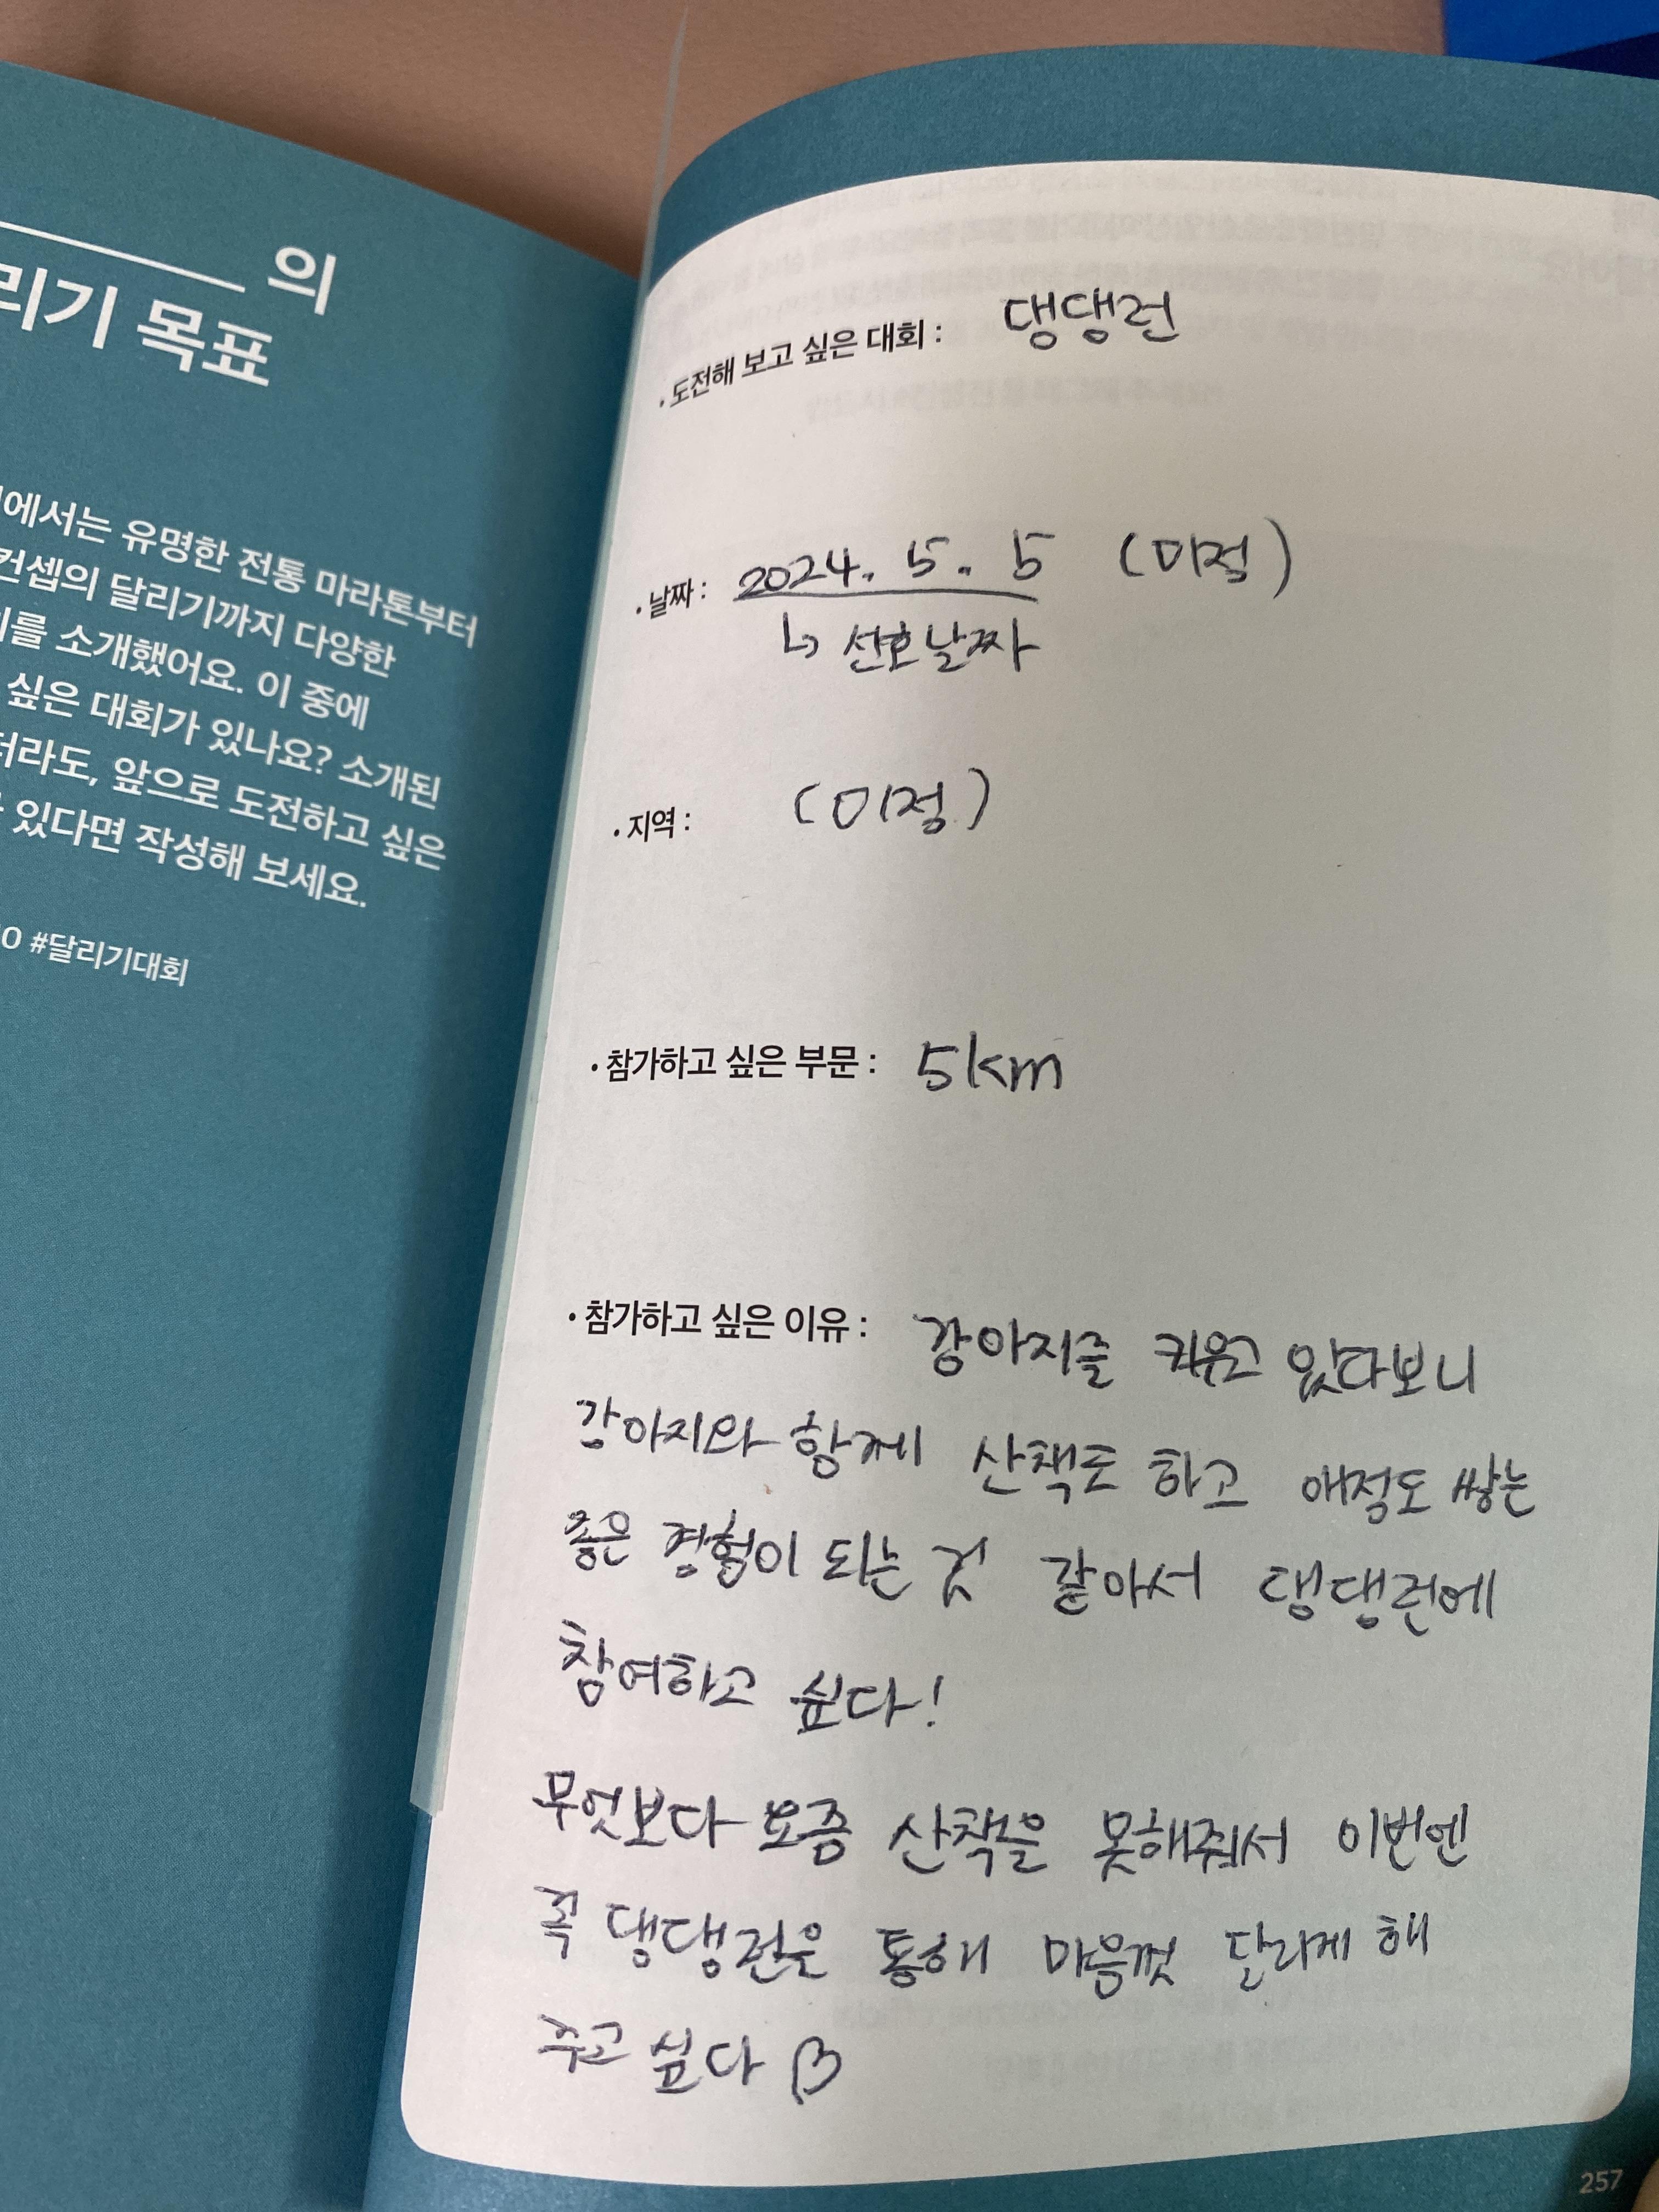 의
리기 목표
에서는 유명한 전통 마라톤부터
컨셉의 달리기까지 다양한
를 소개했어요. 이 중에
싶은 대회가 있나요? 소개된
더라도, 앞으로 도전하고 싶은
있다면 작성해 보세요.
#달리기대회
• 도전해 보고 싶은 대회 : 댕댕런
• 날짜 : 2024. 5. 5 (미정)
↳ 선호날짜
• 지역 : (미정)
• 참가하고 싶은 부문 : 5km
• 참가하고 싶은 이유 : 강아지를 키우고 있다보니
강아지와 함께 산책도 하고 애정도 쌓는
좋은 경험이 되는 것 같아서 댕댕런에
참여하고 싶다!
무엇보다 요즘 산책을 못해줘서 이번엔
꼭 댕댕런을 통해 마음껏 달리게 해
주고 싶다 ♡
257